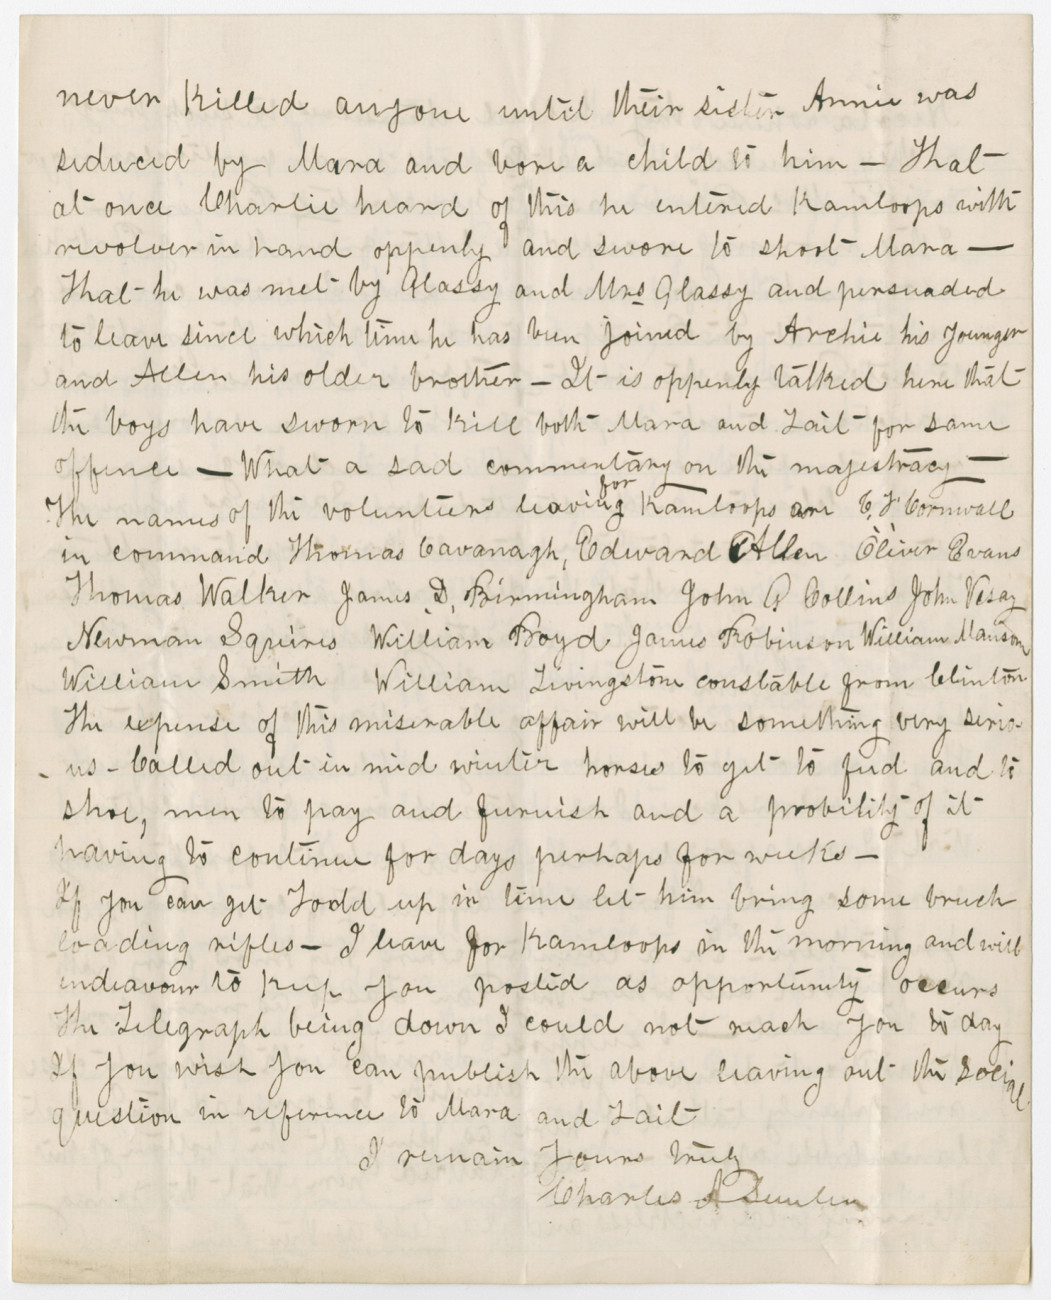 never killed anyone until their sister Annie was
seduced by Mara and bore a child to him — That
at once Charlie heard of this he entered Kamloops with
revolver in hand oppenly and swore to shoot Mara —
That he was met by Glassy and Mrs Glassy and persuaded
to leave since which time he has been joined by Archie his younger
and Allen his older brother — It is oppenly talked here that
the boys have sworn to kill both Mara and Tait for same
offence — What a sad commentary on the majestracy —
The names of the volunteers leaving for Kamloops are C, F Cornwall
in command Thomas Cavanagh, Edward Allen Oliver Evans
Thomas Walker James D, Birmingham John A Collins John Vesay
Newman Squires William Boyd James Robinson William Manson
William Smith William Livingstone constable from Clinton
The expense of this miserable affair will be something very serio-
us - Called out in mid winter horses to get to fud and to
shoe, men to pay and furnish and a probility of it
having to continue for days perhaps for weeks —
If you can get Todd up in time let him bring some breech
loading rifles — I leave for Kamloops in the morning and will
endeavour to keep you posted as opportunity occurs
The Telegraph being down I could not reach you to day
If you wish you can publish the above leaving out the social
question in reference to Mara and Tait
I remain Yours truly
Charles A Semlin